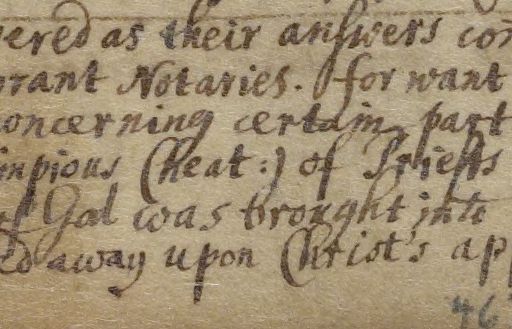 ered as their answers con
rant Notaries. for want
oncerning certain part
impious Cheat:) of Priests
of God was brought into
ed away upon Christ's ap
46